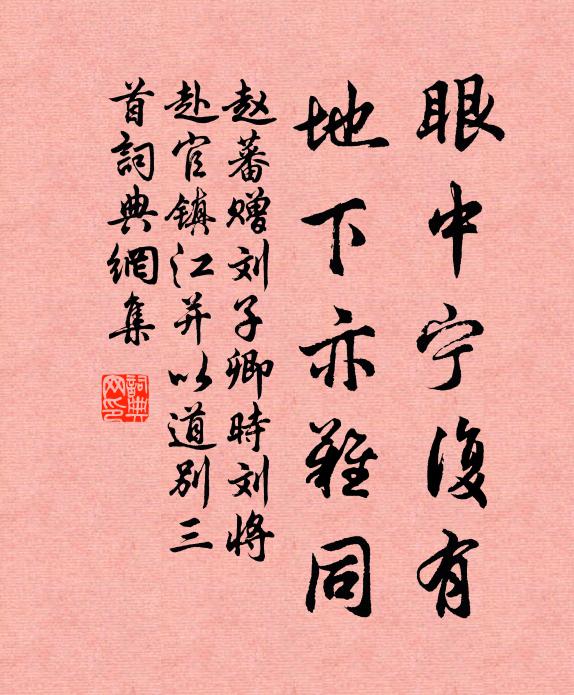 眼中宁復有
地下亦難同
赵蕃赠刘子卿時刘将
赴官镇江并以道别三
首詞典網集
詞典网印